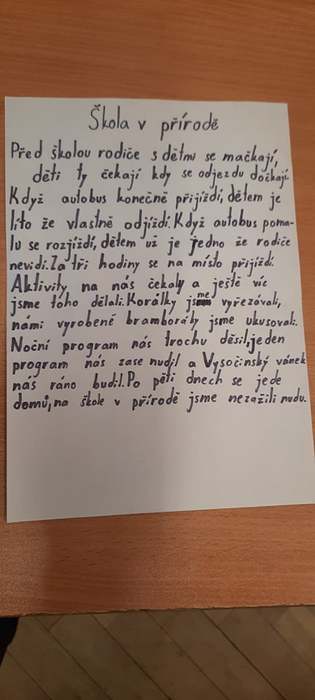 Škola v přírodě
Před školou rodiče s dětmi se mačkají,
děti ty čekají kdy se odjezdu dočkají.
Když autobus konečně přijíždí, dětem je
líto že vlastně odjíždí. Když autobus poma-
lu se rozjíždí, dětem už je jedno že rodiče
nevidí. Za tři hodiny se na místo přijíždí.
Aktivity na nás čekaly a ještě víc
jsme toho dělali. Korálky jsme vyřezávali,
námi vyrobené bramboráky jsme ukusovali.
Noční program nás trochu děsil, jeden
program nás zase nudil a Vysočinský vánek
nás ráno budil. Po pěti dnech se jede
domů, na škole v přírodě jsme nezažili nudu.